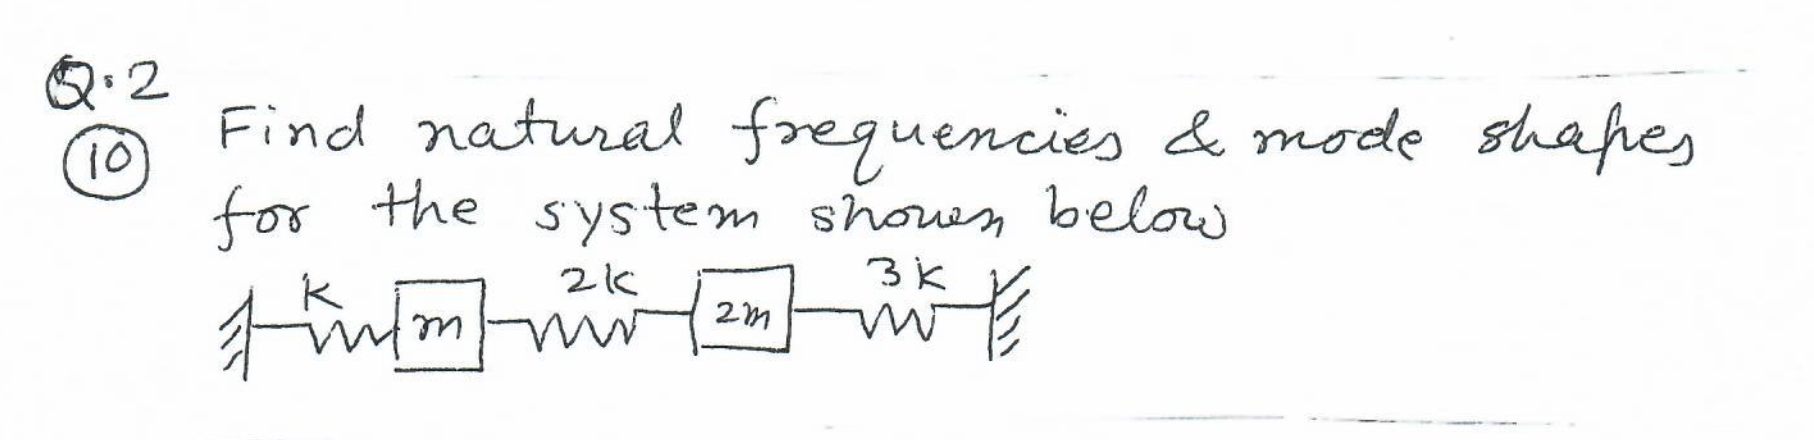 Q.2
10 Find natural frequencies & mode shapes
for the system shown below
k m 2k 2m 3k